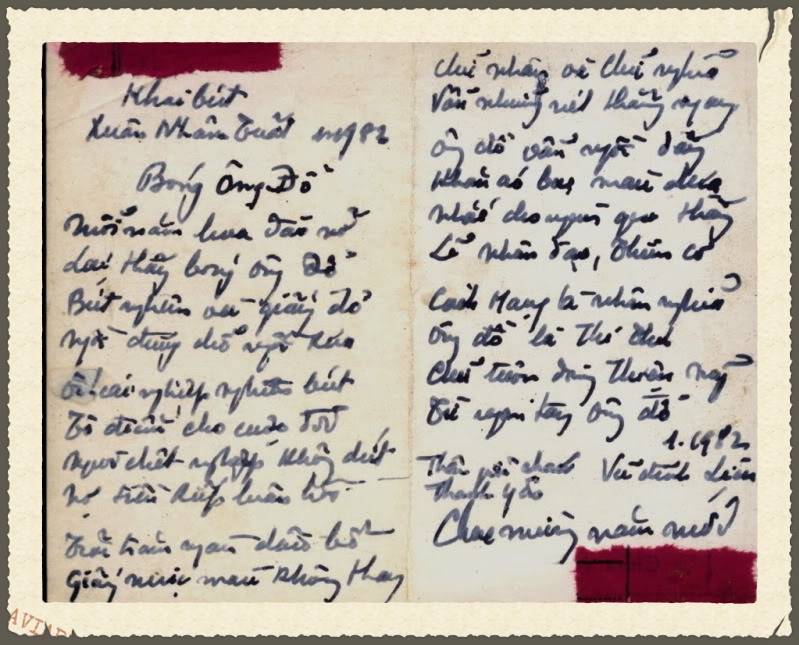 Khai bút
Xuân Nhâm Tuất 1982
Bóng Ông Đồ
Mỗi năm hoa đào nở
Lại thấy bóng ông Đồ
Bút nghiên và giấy đỏ
Ngồi đúng chỗ ngồi xưa
Ôi! cái nghiệp nghiên bút
Tô điểm cho cuộc đời
Người chết nghiệp không dứt
Nợ kiếp luân hồi
Trải trăm ngàn dâu bể
Giấy mực màu không thay
Chữ nhân và Chữ nghĩa
Vẫn những nét thẳng ngay
Ông đồ vẫn ngồi đấy
Khăn áo bạc màu xưa
Nhắc cho người qua thấy
Lẽ nhân đạo,
Cách Mạng là nhân nghĩa
Ông đồ là
Chữ tuôn dòng
Từ ngọn tay ông đồ
1.1982
Thân gửi
Vũ đình Liên
Chúc mừng năm mới
AVIAR